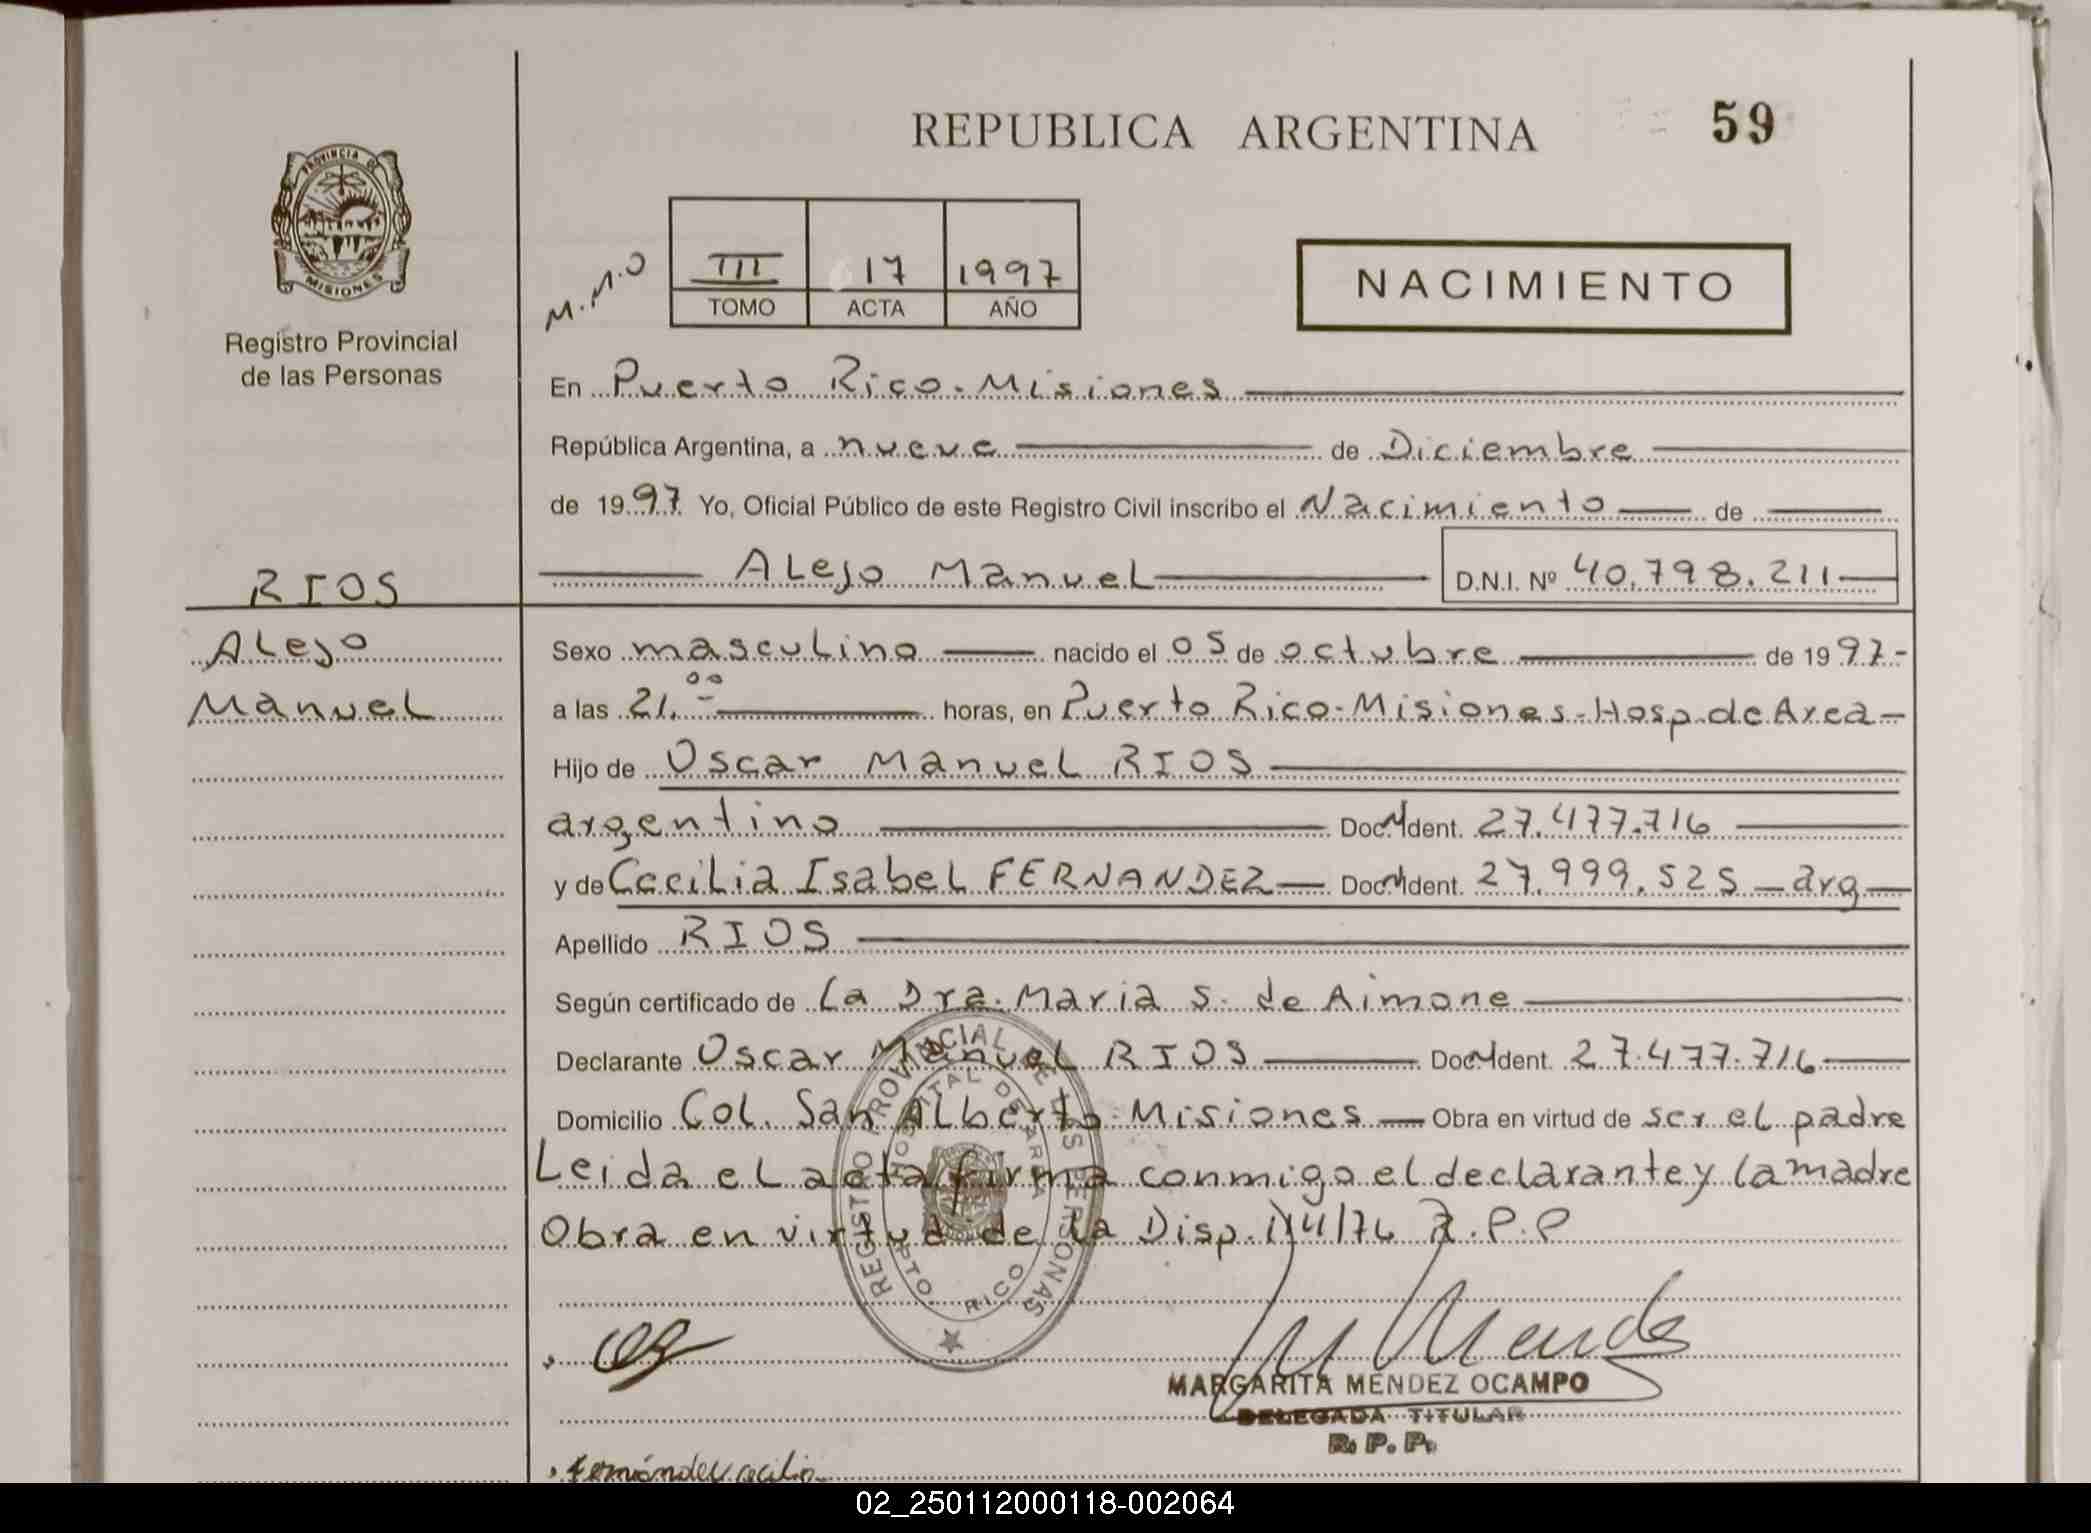 REPUBLICA ARGENTINA
59
PROVINCIA DE
MISIONES
Registro Provincial
de las Personas
M.M.O
III 17 1997
TOMO ACTA AÑO
NACIMIENTO
En Puerto Rico - Misiones
República Argentina, a nueve de Diciembre
de 1997 Yo, Oficial Público de este Registro Civil inscribo el Nacimiento de
Alejo Manuel D.N.I. Nº 40.798.211
RIOS
Alejo
Manuel
Sexo masculino nacido el 05 de octubre de 1997-
a las 21.00 horas, en Puerto Rico - Misiones - Hosp. de Area -
Hijo de Oscar Manuel RIOS
argentino Doc. Ident. 27.477.716
y de Cecilia Isabel FERNANDEZ Doc. Ident. 27.999.525 - arg
Apellido RIOS
Según certificado de la Dra. Maria S. de Aimone
Declarante Oscar Manuel RIOS Doc. Ident. 27.477.716
Domicilio Col. San Alberto - Misiones Obra en virtud de ser el padre
Leida el acta firma conmigo el declarante y la madre
Obra en virtud de la Disp. 114/76 R.P.P
REGISTRO PROVINCIAL DE LAS PERSONAS
HOSPITAL DE AREA
PTO. RICO
M Mendez
MARGARITA MENDEZ OCAMPO
DELEGADA TITULAR
R. P. P.
Fernández cecilia
02_250112000118-002064